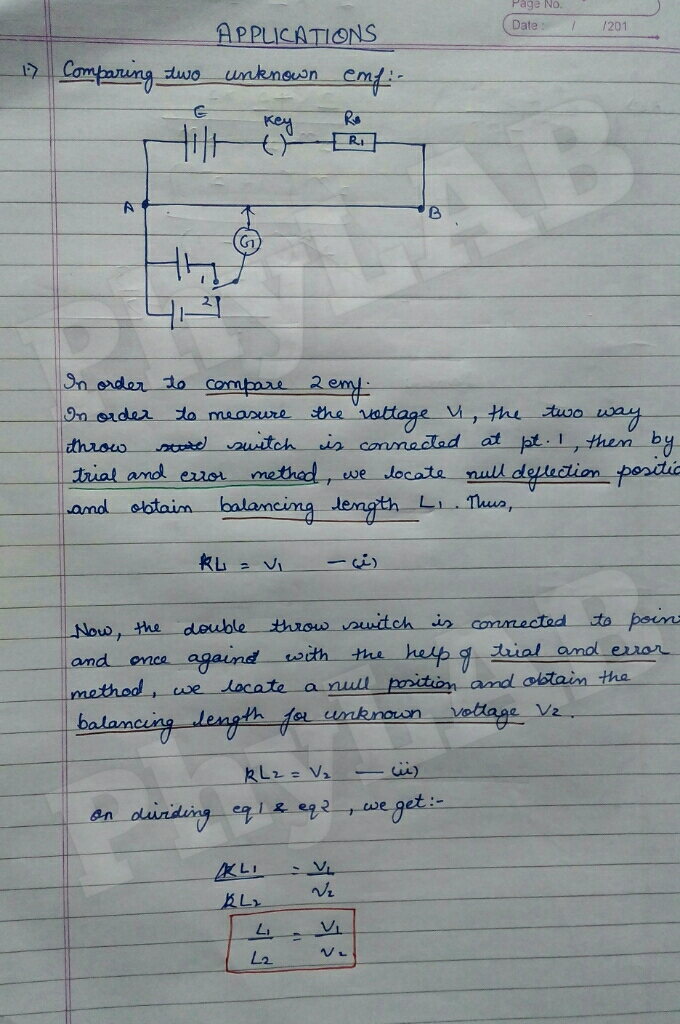 Page No.
Date: / /201
APPLICATIONS
1:→ Comparing two unknown emf:-
E
Key
R
R1
A
B
G
1
2
PhyLAB
In order to compare 2 emf.
In order to measure the voltage V1, the two way
throw switch is connected at pt. 1, then by
trial and error method, we locate null deflection positio
and obtain balancing length L1. Thus,
kL1 = V1 —(i)
Now, the double throw switch is connected to poin
and once again with the help of trial and error
method, we locate a null position and obtain the
balancing length for unknown voltage V2.
PhyLAB
kL2 = V2 —(ii)
on dividing eq 1 & eq 2, we get:-
kL1 = V1
kL2 V2
L1 = V1
L2 V2